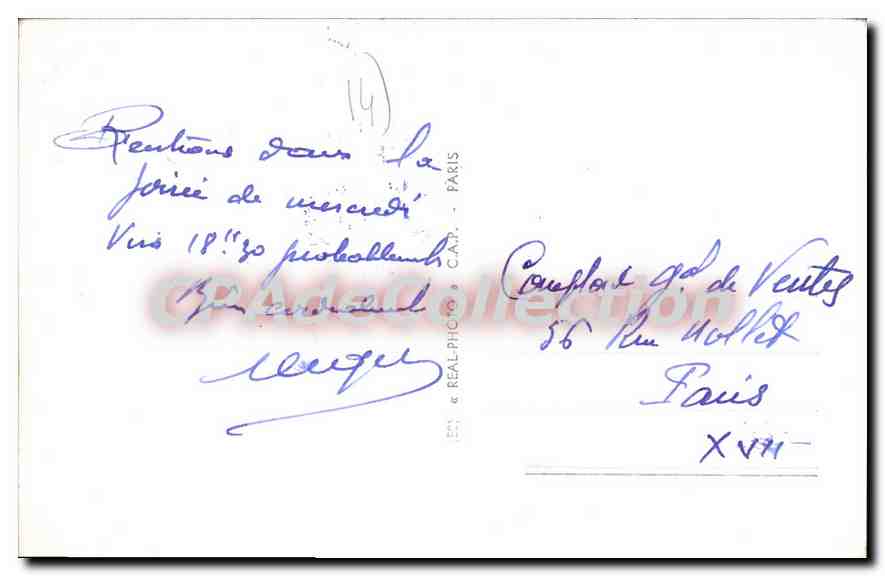 14)
Rentrons dans la
soirée de mercredi
Vers 18h30 probablement
Bien cordialement
« REAL-PHOTO » C.A.P. - PARIS
Comptoir Gal de Ventes
56 Rue Nollet
Paris
XVII
CPAdeCollection